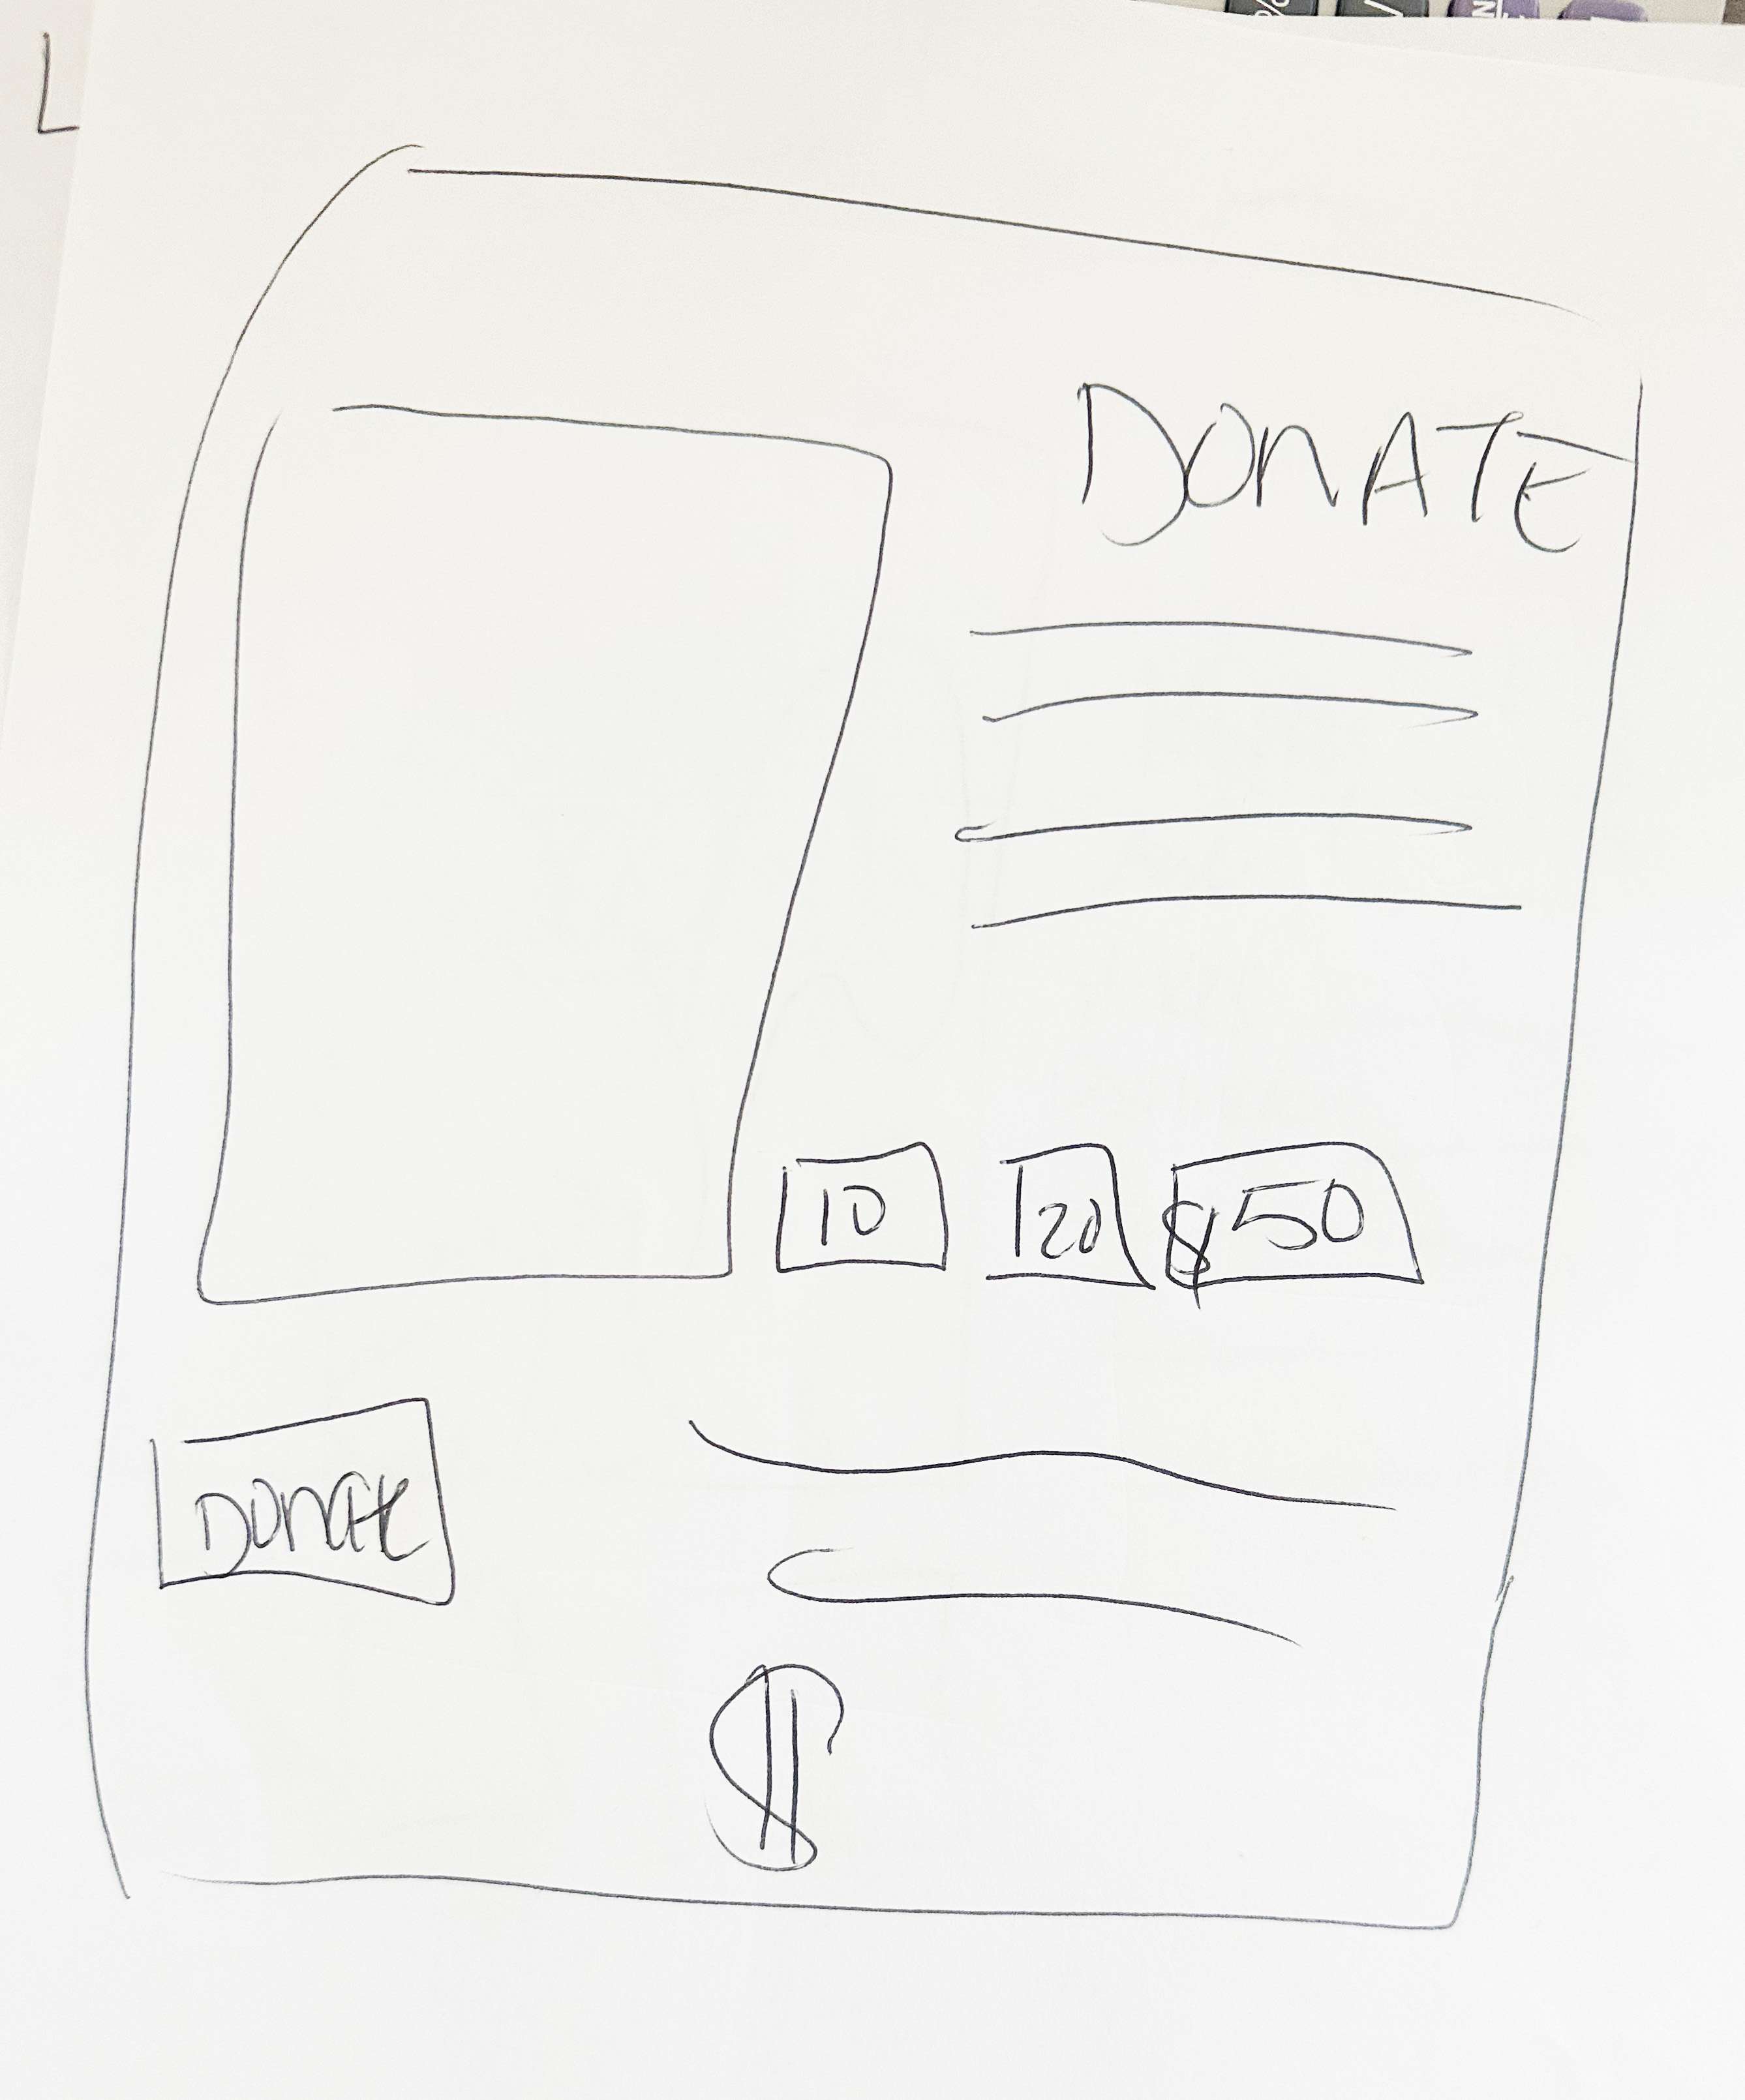 DONATE
10 20 $50
DONATE
$